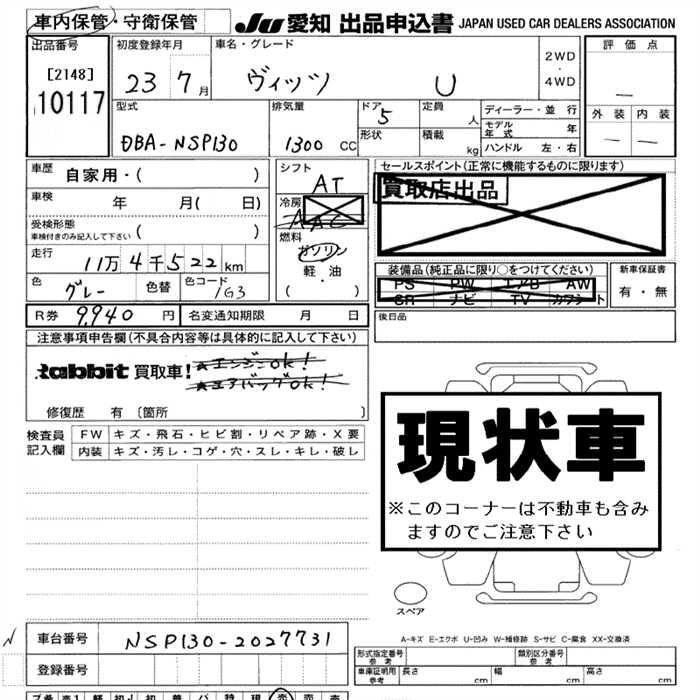 車内保管・守衛保管
JU 愛知 出品申込書 JAPAN USED CAR DEALERS ASSOCIATION
出品番号 初度登録年月 車名・グレード 2WD・4WD 評価点
[2148]
10117
23 7月 ヴィッツ U
—
型式 排気量 ドア 5 定員 人 ディーラー・並行 外装 内装
形状 積載 kg モデル年式 年
DBA-NSP130 1300 CC ハンドル 左・右 — —
車歴 自家用・( ) シフト AT セールスポイント(正常に機能するものに限ります)
車検 年 月( 日) 冷房 AAC 買取店出品
受検形態 ( )
車検付きのみ記入して下さい
燃料 ガソリン
軽・油
( )
走行 11万4千522km
装備品(純正品に限り○をつけてください) 新車保証書
色 グレー 色替 色コード 1G3 PS PW エアB AW 有・無
SR ナビ TV カワシート
R券 9,940 円 名変通知期限 月 日 後日品
注意事項申告欄(不具合内容等は具体的に記入して下さい)
Rabbit 買取車! ★エンジンOK!
★エアバッグOK!
修復歴 有 〔箇所 〕
検査員 FW キズ・飛石・ヒビ割・リペア跡・X要
記入欄 内装 キズ・汚レ・コゲ・穴・スレ・キレ・破レ
現状車
※このコーナーは不動車も含み
ますのでご注意下さい
スペア
A-キズ E-エクボ U-凹み W-補修跡 S-サビ C-腐食 XX-交換済
車台番号 NSP130-2027731
登録番号
形式指定番号 参考 類別区分番号 参考
車庫証明用 参考 長さ cm 幅 cm 高さ cm